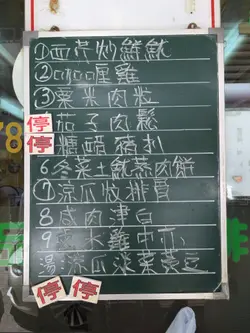 ①西芹炒鮮魷
②咖喱雞
③粟米肉粒
停 茄子肉鬆
停 糖醋豬扒
6冬菜土魷蒸肉餅
⑦涼瓜炆排骨
8咸肉津白
9鹵水雞中亦
湯瓜菜黃豆
停 停